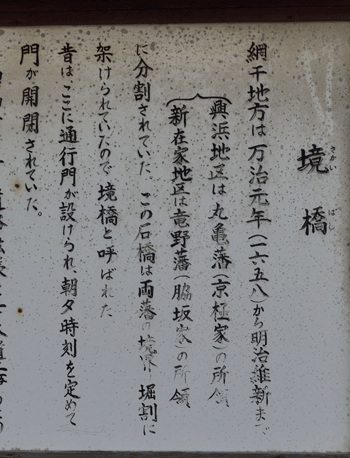 境橋
さかい ばし
網干地方は万治元年(一六五八)から明治維新まで
興浜地区は丸亀藩(京極家)の所領
新在家地区は竜野藩(脇坂家)の所領
に分割されていた。この石橋は両藩の境界、堀割に
架けられていたので境橋と呼ばれた
昔はここに通行門が設けられ、朝夕時刻を定めて
門が開閉されていた。